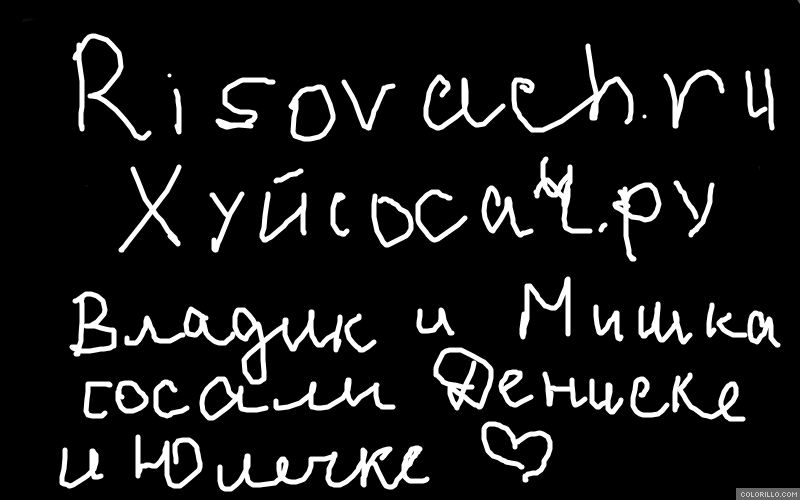 Risovach.ru
Хуйсосач.ру
Владик и Мишка
сосали Дениске
и Юлечке
COLORILLO.COM